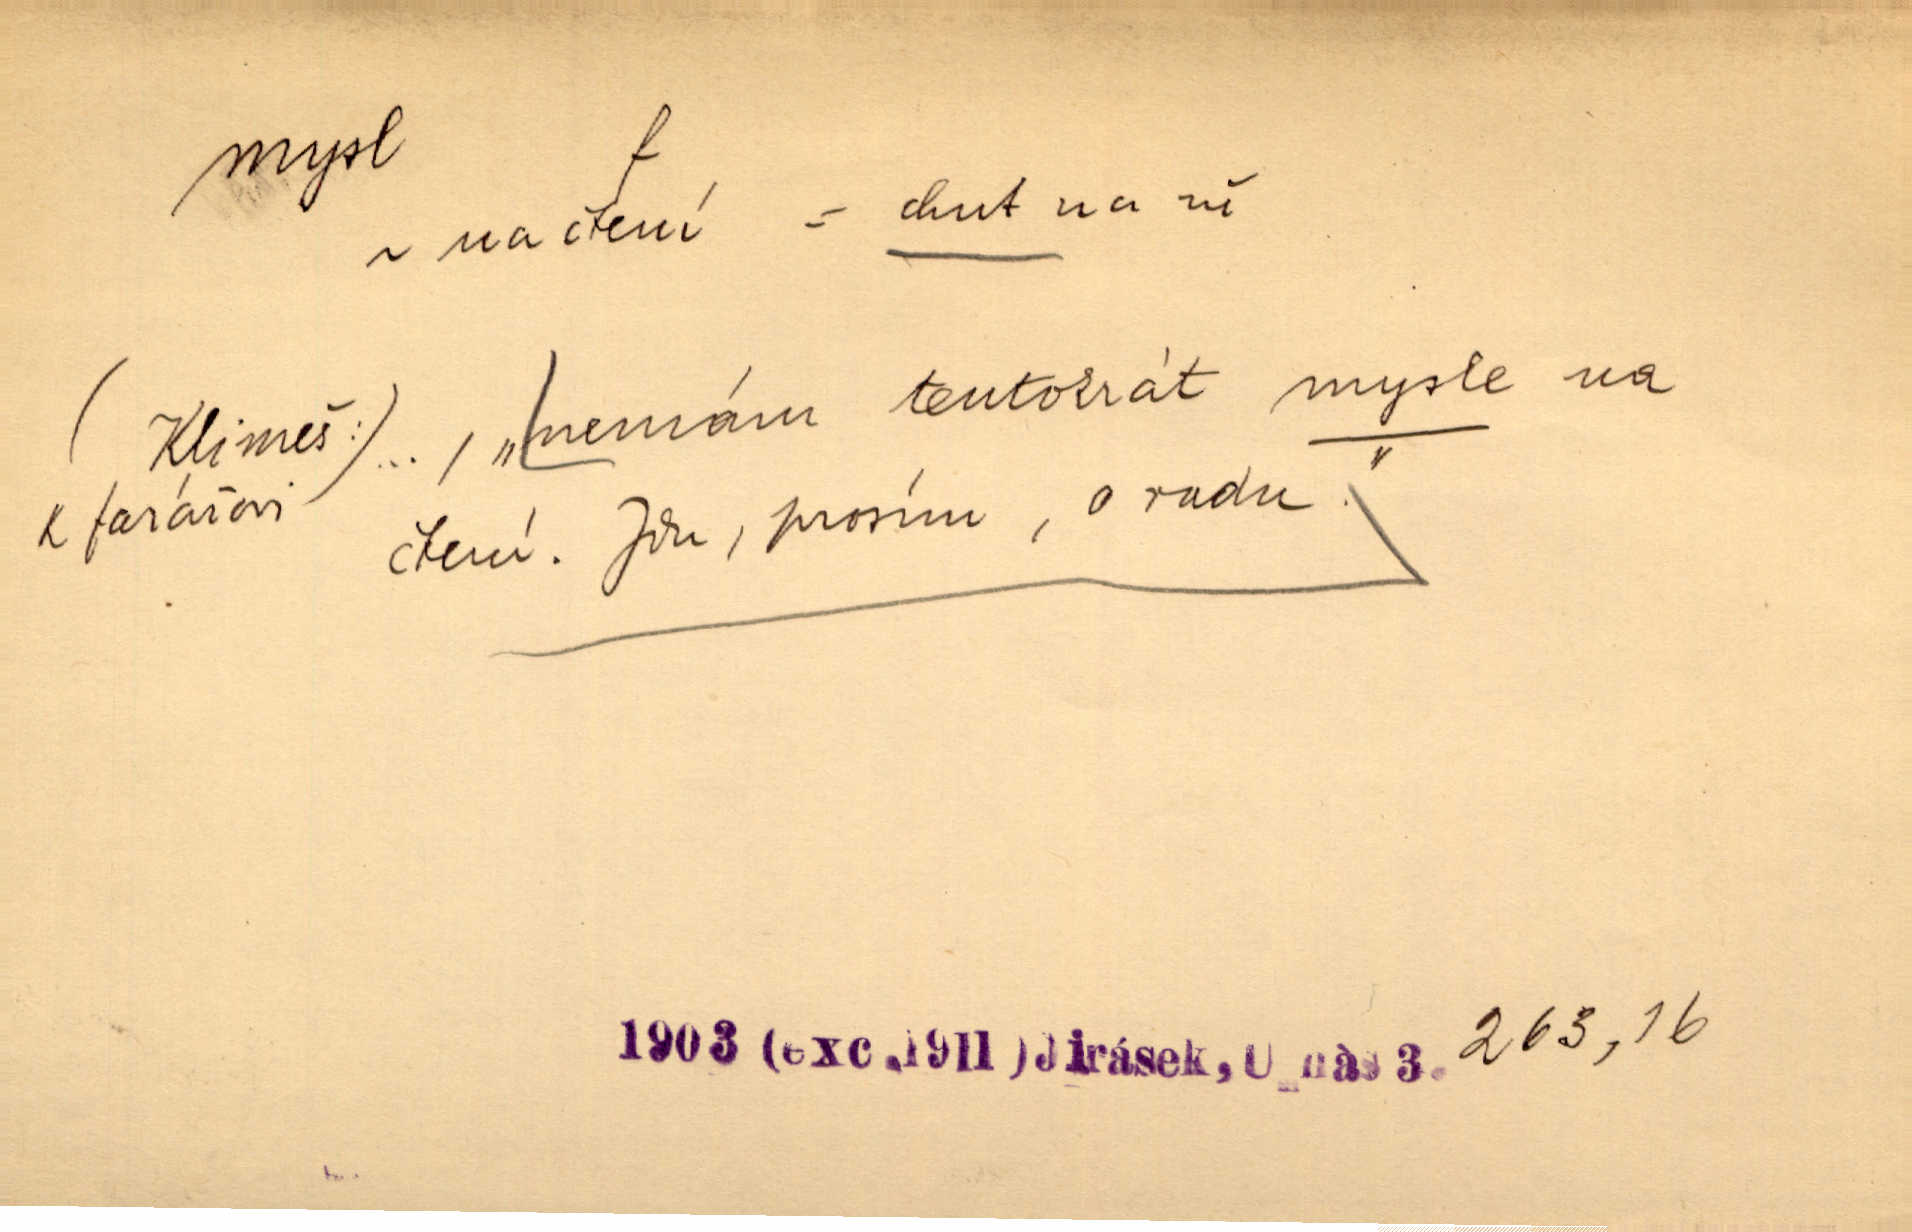 mysl f
~ na čtení = chut na ně
(Klimeš:) ... , „nemám tentokrát mysle na
k farářovi
čtení. Jdu, prosím, o radu."
1903 (exc. 1911) Jirásek, U nás 3. 263,16